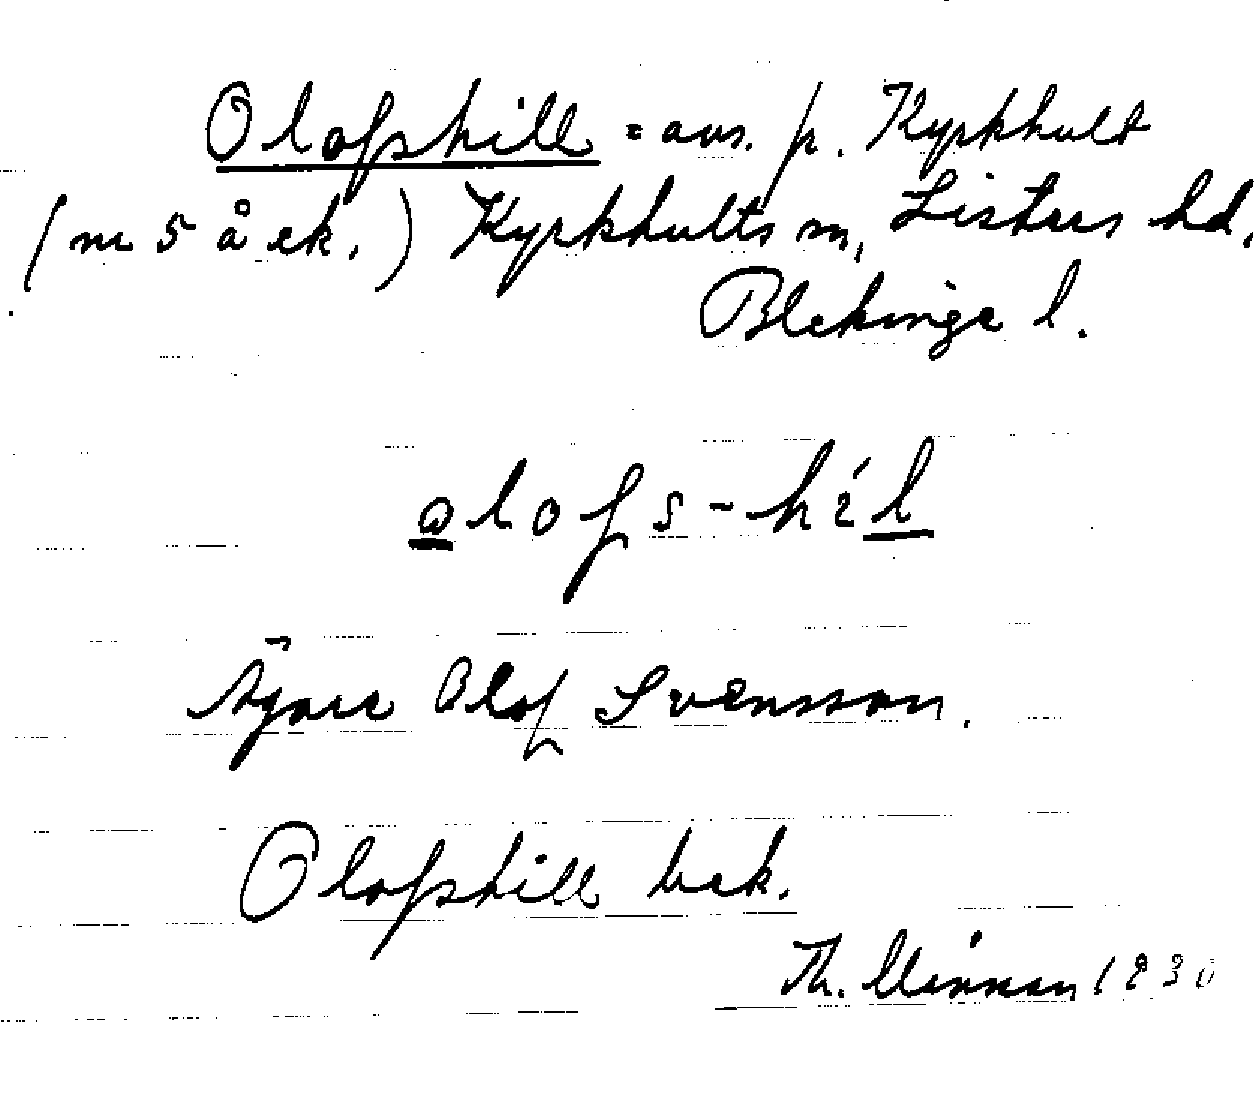 Olofshill = avs. fr. Kyrkhult
(nr 5 å ek.) Kyrkhults sn, Listers hd,
Blekinge l.
olofs-híl
Ägare Olof Svensson.
Olofshill bek.
Th. 1930